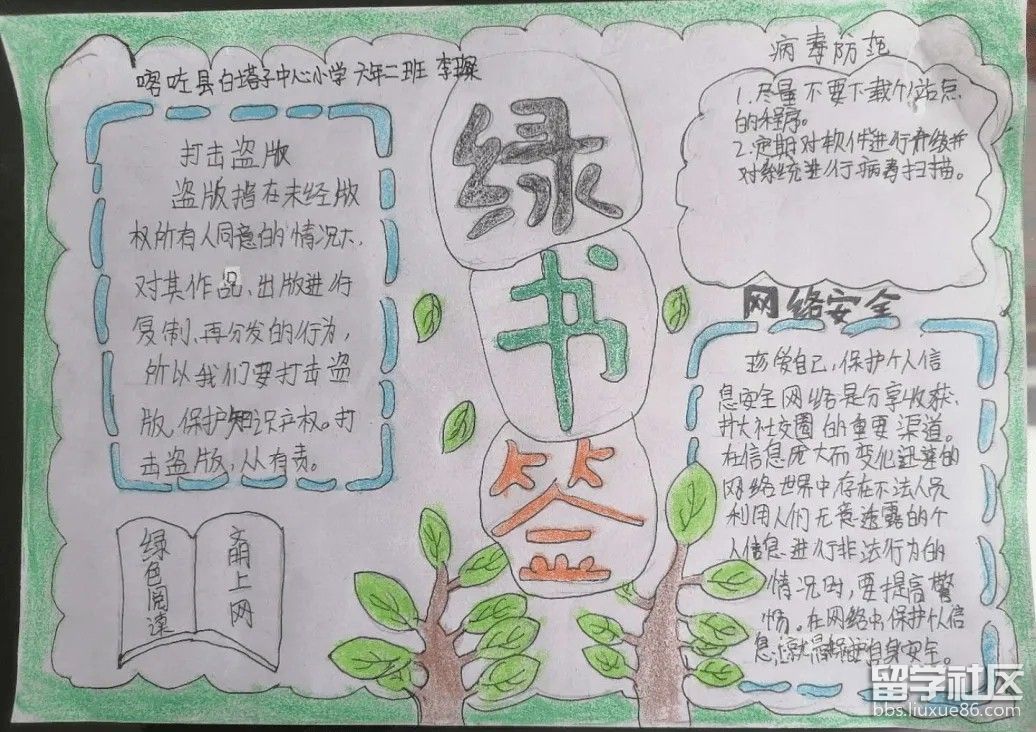 喀咗县白塔子中心小学 六年二班 李璨
绿
书
签
打击盗版
盗版指在未经版
权所有人同意的情况下,
对其作品、出版进行
复制、再分发的行为,
所以我们要打击盗
版,保护知识产权。打
击盗版,从有责。
绿色阅读
文明上网
病毒防范
1.尽量不要下载个站点
的程序。
2.定期对软件进行升级并
对系统进行病毒扫描。
网络安全
爱自己,保护个人信
息安全网络是分享收获、
扩大社交圈的重要渠道。
在信息庞大而变化迅速的
网络世界中存在不法人员
利用人们无意透露的个
人信息进行非法行为的
情况时,要提高警
惕。在网络中保护个人信
息,就是保护自身安全。
留学社区
bbs.liuxue86.com